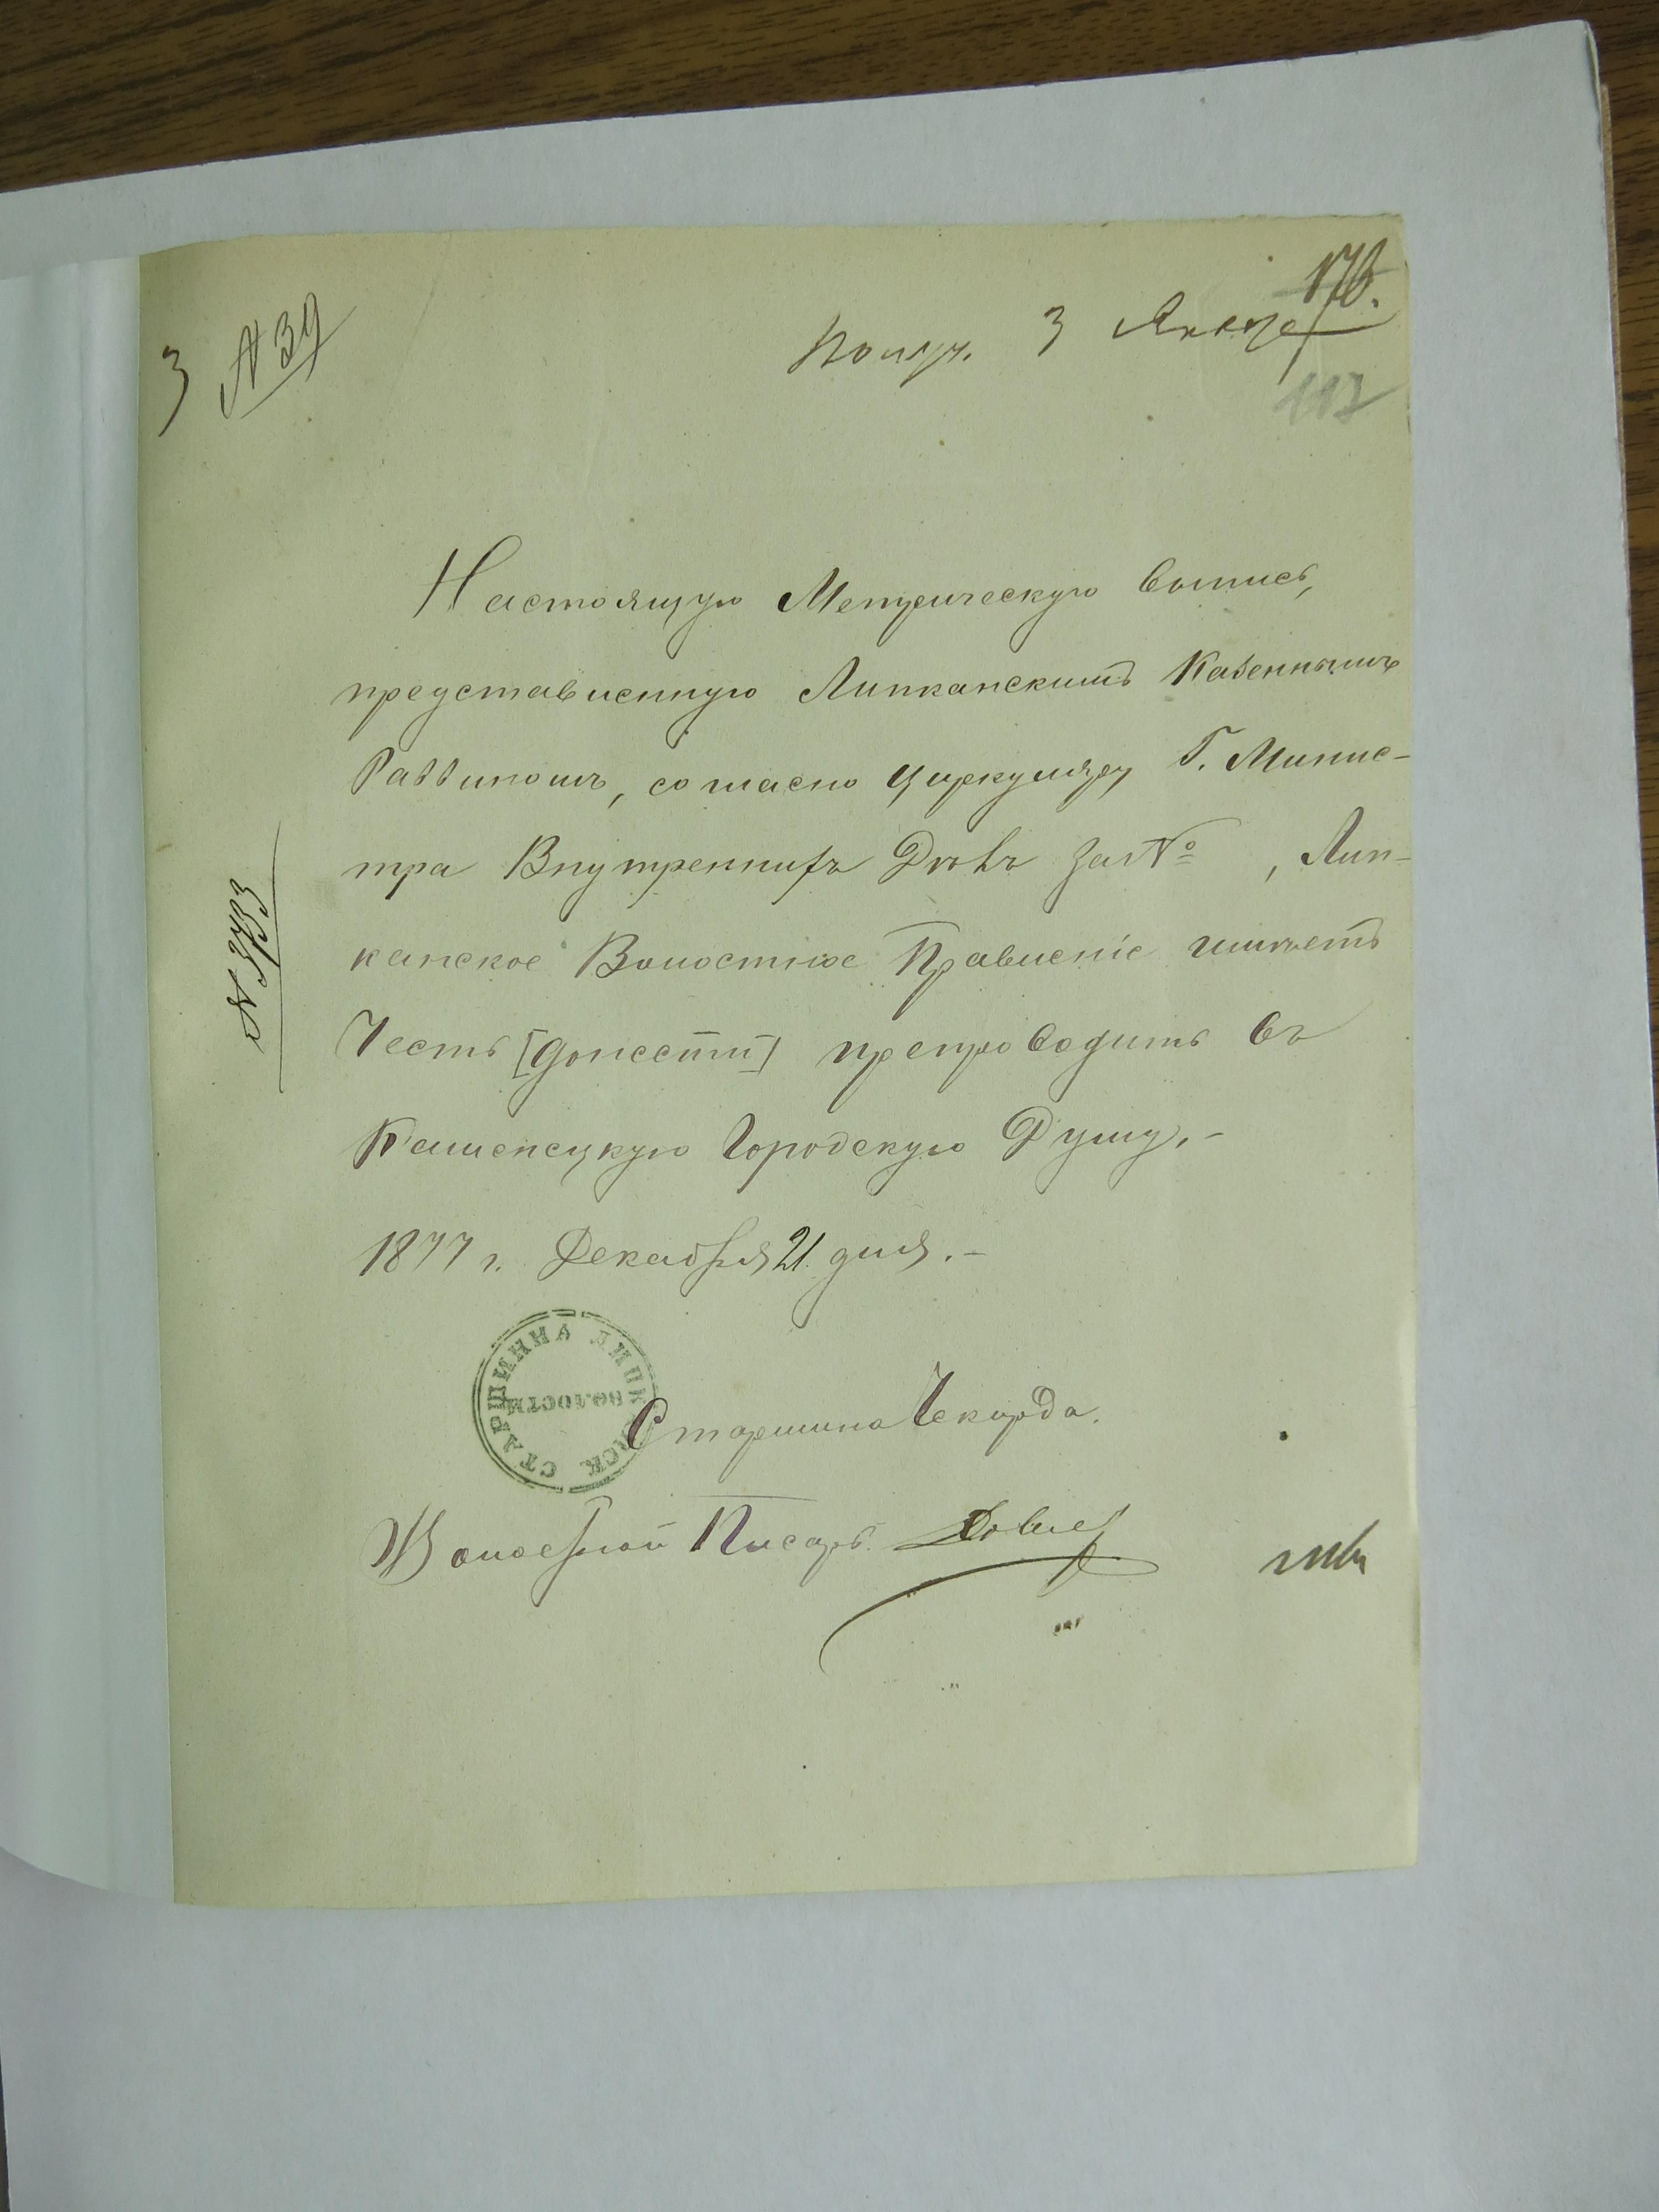 3 № 39
Получ. 3 Января
176.
117
Настоящую Метрическую выпись,
представленную Липканскимъ Казеннымъ
Раввиномъ, согласно циркуляру Г. Минис-
тра Внутреннихъ Дѣлъ за №  , Лип-
канское Волостное Правленіе имѣетъ
Честь [донести] препроводить въ
Каменецкую Городскую Думу.-
1877 г. Декабря 21 дня.-
№ 3733
СТАРШИННА ЛИПКАНСК
ВОЛОСТИ
Старшина Чекирда.
Волостной Писарь